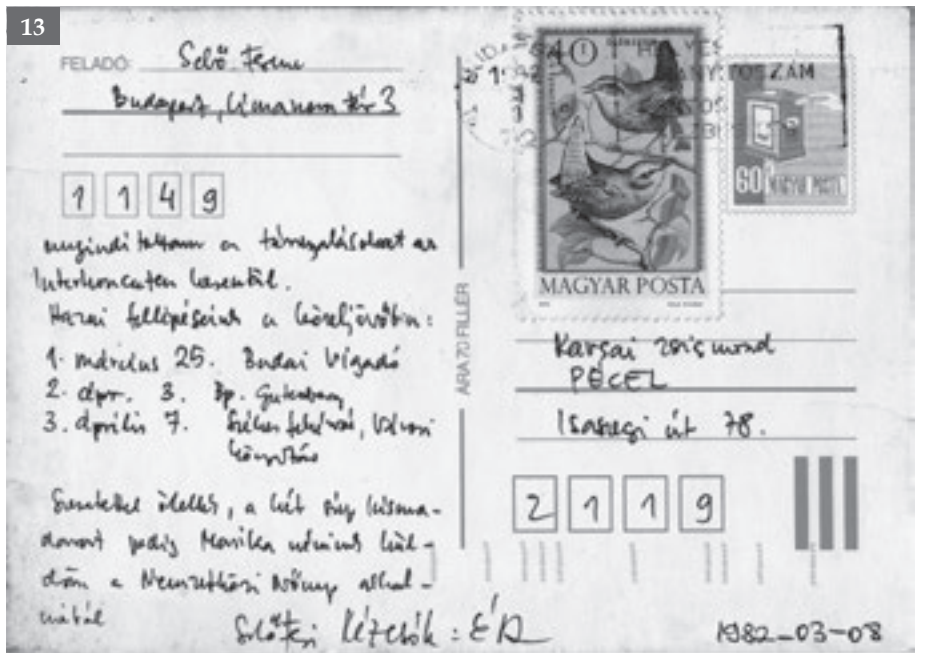 13
FELADÓ: Sebő Ferenc
Budapest, Limanova tér 3
1149
megindítottam a tárgyalásokat az
Interkoncerten keresztül.
Hazai fellépéseink a közeljövőben:
1. március 25. Budai Vigadó
2. ápr. 3. Bp. Gutenberg
3. április 7. Székesfehérvár, Városi
könyvtár
Szeretettel ölellek, a két szép kisma-
darat pedig Marika néninek kül-
döm a Nemzetközi Nőnap alkal-
mából
kézcsók:
1982-03-08
ÁRA 70 FILLÉR
MAGYAR POSTA
60 MAGYAR POSTA
Karsai Zsigmond
PÉCEL
Isaszegi út 78.
2119